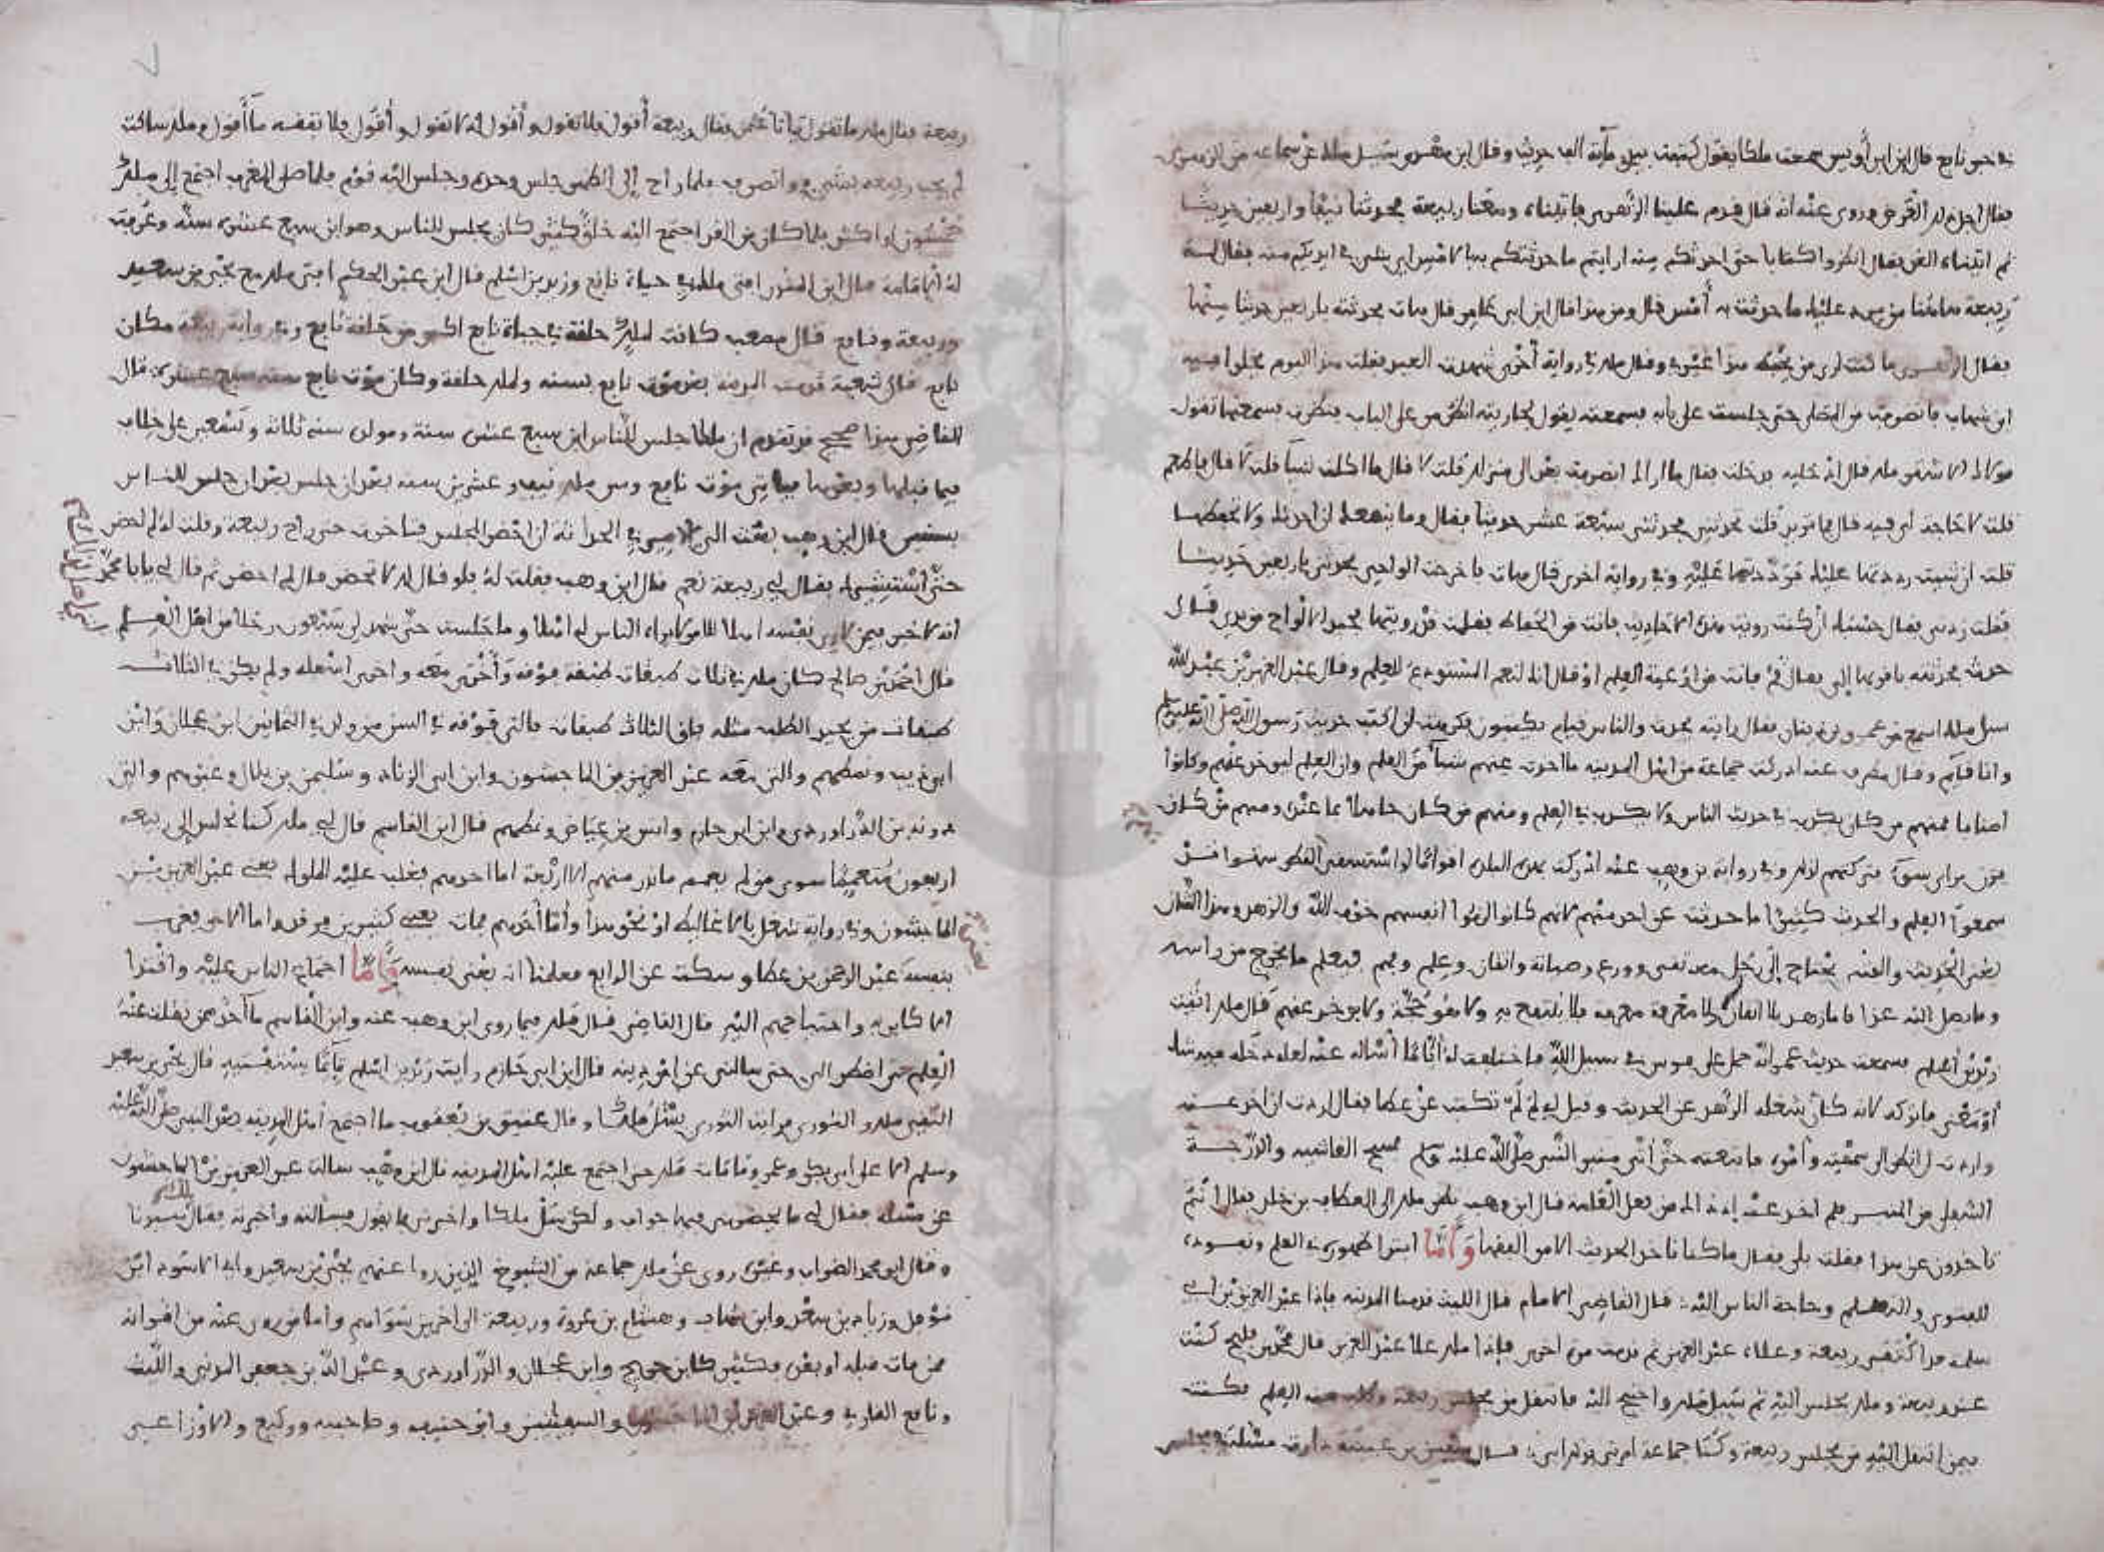 في حبو نافع قال ابن ابي أويس سمعت ملكا يقول كتبت بيدي مائة ألف حديث وقال ابن مهدي سئل ملك عن سماعه من الزهري
فقال اجله له العرض وروى عنه انه قال قدم علينا الزهري فاتيناه ومعنا ربيعة فحدثنا نيفا واربعين حديثا
ثم اتيناه الغد فقال انظروا كتابا حتى احدثكم منه ارايتم ما حدثتكم به بالامس اي شيء في ايديكم منه فقال له
ربيعة هاهنا من يرد عليك ما حدثت به أمس قال ومن هو قال ابن ابي عامر قال هات فحدثته باربعين حديثا منها
فقال الزهري ما كنت ارى من يحفظ هذا غيري وقال ملك في رواية أخرى شهدت العيد فقلت هذا اليوم يخلوا فيه
ابن شهاب فانصرفت من المصلى حتى جلست على بابه فسمعته يقول لجاريته انظري من على الباب فنظرت فسمعتها تقول
مولاك الاشقر ملك قال ادخليه فدخلت فقال ما اراك انصرفت بعد الى منزلك قلت لا قال ما اكلت شيئا قلت لا قال فاطعم
قلت لا حاجة لي فيه قال فما تريد قلت تحدثني فحدثني سبعة عشر حديثا فقال وما ينفعك ان احدثك ولا تحفظها
قلت ان شئت رددتها عليك فرددتها عليه وفي رواية اخرى قال هات فاخرجت الواحي فحدثني باربعين حديثا
فقلت زدني فقال حسبك ان كنت رويت هذه الاحاديث فانت من الحفاظ فقلت قد رويتها فجبذ الالواح من يدي قال
حدث فحدثته فردها إلي فقال قم فانت من اوعية العلم او قال انك لنعم المستودع للعلم وقال عبد العزيز بن عبد الله
سئل ملك اسمع من عمرو بن دينار فقال رايته يحدث والناس قيام يكتبون فكرهت ان اكتب حديث رسول الله صلى الله عليه وسلم
وانا قائم وقال مطرف عنه ادركت جماعة من اهل المدينه ما اخذت عنهم شيئا من العلم وان العلم ليوخذ عنهم وكانوا
اصنافا فمنهم من كان يكذب في حديث الناس ولا يكذب في العلم ومنهم من كان جاهلا بما عنده ومنهم من كان
يزن براي سوء فتركتهم لذلك وفي رواية بن وهب عنه ادركت بهذه البلدة اقواما لو استسقي بهم القطر سقوا قد
سمعوا العلم والحديث كثيرا ما حدثت عن احد منهم لانهم كانوا الزموا انفسهم خوف الله والزهد وهذا الشان
يعني الحديث والفتيا يحتاج إلى رجل معه تقى وورع وصيانة واتقان وعلم وفهم فيعلم ما يخرج من راسه
وما يصل اليه غدا فاما زهد بلا اتقان ولا معرفة فلا ينتفع به ولا هو حجة ولا يوخذ عنهم قال ملك اتيت
زيد بن أسلم فسمعت حديث عمر انه حمل على فرس في سبيل الله فاختلفت له أياما أسأله عنه لعله دخله فيه شك
أو معنى فاتركه لانه كان شغله الزهد عن الحديث وقيل له لم لم تكتب عن عطا فقال اردت ان اخذ عنه
واردت ان انظر الى سمته وأمره فاتبعته حتى أتى منبر النبي صلى الله عليه وسلم فمسح الغاشيه والدرجة
السفلى من المنبر فلم اخذ عنه إذ ذاك من فعل العامه قال ابن وهب نظر ملك الى العطاف بن خلد فقال انتم
تاخذون عن هذا فقلت بلى فقال ما كنا ناخذ الحديث الا من الفقها وأما ابتدا ظهوره في العلم وقعوده
للفتوى والتعليم وحاجة الناس اليه: قال القاضي الامام قال الليث قدمنا المدينه فإذا عبد العزيز بن ابي
سلمه قد اكتنفه ربيعة وعلاه عبد العزيز ثم قدمت مرة اخرى فإذا ملك علا عبد العزيز قال محمد بن فليح كنت
عند ربيعة وملك يجلس اليه ثم سئل ملك واحتيج اليه فانتقل من مجلس ربيعة وطلب منه العلم فكنت
فيمن انتقل اليه من مجلس ربيعة وكنا جماعة امرني بذلك ابي: قال سفين بن عيينة دارت مسئلة في مجلس
ربيعة فقال ملك ما تقول يا أبا عثمن فقال ربيعة أقول فلا تقول وأقول اذ لا تقول وأقول فلا تفقه ما أقول وملك ساكت
لم يجب ربيعه بشيء وانصرف فلما راح إلى الظهر جلس وحده وجلس اليه قوم فلما صلى المغرب اجتمع إلى ملك
خمسون او اكثر فلما كان من الغد اجتمع اليه خلق كثير كان يجلس للناس وهو ابن سبع عشرة سنة وعرفت
له الامامة قال ابن المنذر افتى ملك في حياة نافع وزيد بن اسلم قال ابن عبد الحكم افتى ملك مع يحيى بن سعيد
وربيعة ونافع قال مصعب كانت لملك حلقة في حياة نافع اكبر من حلقة نافع وفي رواية مكان
نافع قال شعبة قدمت المدينه بعد موت نافع بسنه ولملك حلقة وكان موت نافع سنه سبع عشرة قال
القاضي هذا صحيح قد تقدم ان ملكا جلس للناس ابن سبع عشرة سنة ومولده سنة ثلاثه وتسعين على خلاف
فيما قبلها وبعدها فياتي موت نافع وسن ملك نيف وعشرين سنه بعد ان جلس للناس
بسنين قال ابن وهب بعث الي الامير في الحداثة ان احضر المجلس فتاخرت حتى راح ربيعة وقلت له لم احضر
حتى أستشيرك فقال لي ربيعة نعم قال ابن وهب فقلت له فلو قال لك لا تحضر قال لم احضر ثم قال لي يا با محمد
انه لا خير فيمن يرى نفسه اهلا لامر لا يراه الناس له اهلا وما جلست حتى شهد لي سبعون رجلا من اهل العلم
قال احمد بن صالح كان ملك في ثلاث طبقات طبقة فوقه وأخرى معه واخرى اسفله ولم يكن في الثلاث
طبقات من يجيد الطلب مثله فاق الثلاث طبقات فالتي فوقه في السن من ولد في الثمانين ابن عجلان وابن
ابي ذيب ونظرائهم والتي معه عبد العزيز بن الماجشون وابن ابي الزناد وسليمن بن بلال وغيرهم والتي
دونه بن الدراوردي وابن ابي حازم وانس بن عياض ونظراؤهم قال ابن القاسم قال لي ملك كنا نجلس إلى ربيعه
اربعون معتما سوى من لم يعتم ما برز منهم الا اربعة اما احدهم فغلب عليه الملوك يعني عبد العزيز بن
الماجشون وفي رواية شغل بالاغاليط او نحو هذا وأما أحدهم فمات يعني كثير بن فرقد واما الاخر فغرب
بنفسه عبد الرحمن بن عطا وسكت عن الرابع فعلمنا انه يعني نفسه وأما اجتماع الناس عليه واقتدا
الاكابر به واحتياجهم اليه قال القاضي قال ملك فيما روى ابن وهب عنه وابن القاسم ما أحد ممن نقلت عنه
العلم حتى اضطر الي حتى سالني عن امر دينه قال ابن ابي حازم رأيت زيد بن اسلم قائما يستفتيه قال يحيى بن سعيد
التقى ملك والثوري فرايت الثوري يسئل ملكا وقال عتيق بن يعقوب ما اجتمع أهل المدينه بعد النبي صلى الله عليه
وسلم الا على ابي بكر وعمر ومات ملك حين اجتمع عليه اهل المدينه قال ابن وهب سالت عبد العزيز بن الماجشون
عن مسئله فقال لي ما يحضرني فيها جواب ولكن سل ملكا واخبرني بما يقول فسألته واخبرته فقال سيدنا
وقال ابو محمد الضراب وغيره روى عن ملك جماعة من الشيوخ الذين روا عنهم يحيى بن سعيد وابو الاسود ابن
نوفل وزياد بن سعد وابن شهاب وهشام بن عروة وربيعة الى اخرين سواهم وأما من روى عنه من اقرانه
ممن مات قبله أو بعده فكثير كابن جريج وابن عجلان والدراوردي وعبد الله بن جعفر المدني والليث
ونافع القاري وعبد العزيز بن الماجشون والسفينين وابو حنيفه وصاحبيه ووكيع والاوزاعي